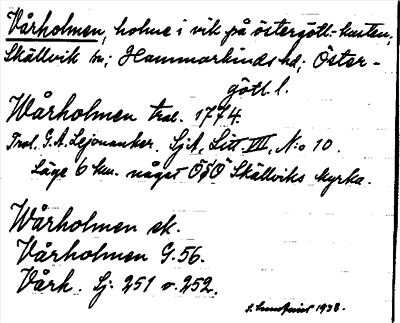 Vårholmen, holme i vik på östergötl.-kusten;
Skällvik sn; Hammarkinds hd; Öster-
götl. l.
Wårholmen tral. 1774.
Tral. G. A. Lejonanker. SjA, Litt. VIII, N:o 10.
Läge 6 km. något ÖSÖ Skällviks kyrka.
Wårholmen ek.
Vårholmen G. 56.
Vårh. Sj: 251 o. 252.
1938.